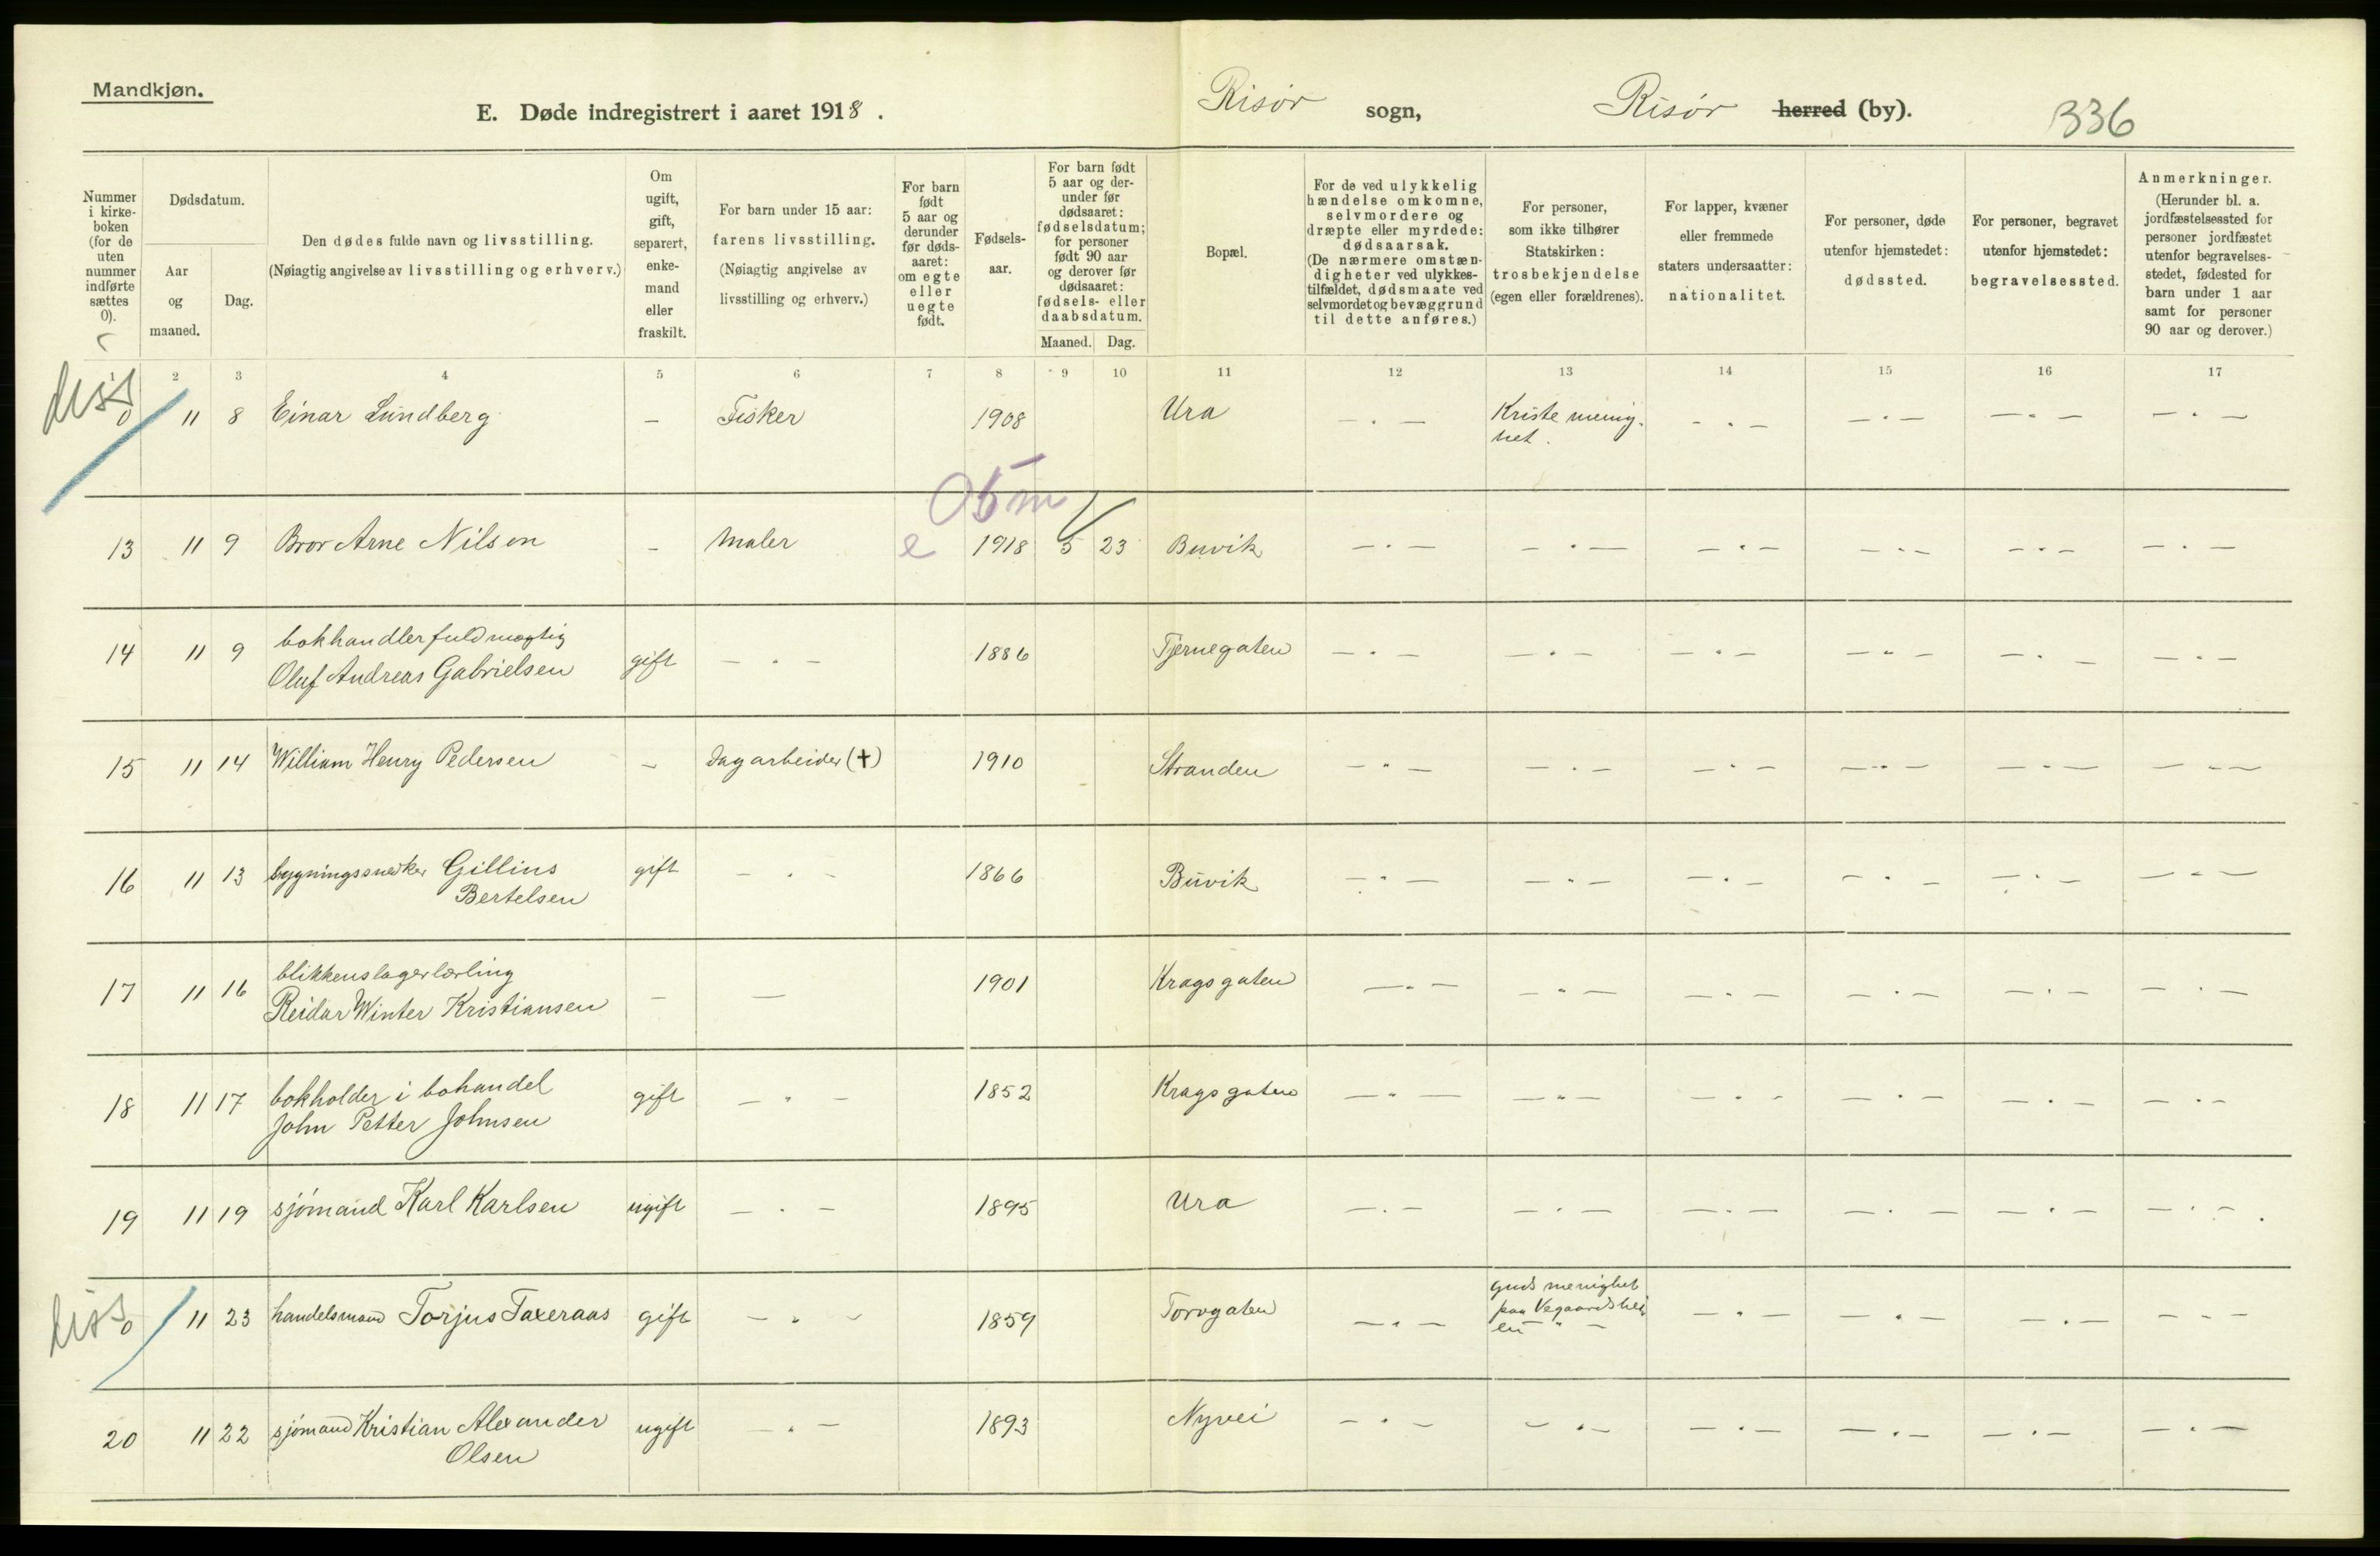 Mandkjøn.
E. Døde indregistrert i aaret 1918.
Risör sogn, Risör herred (by).
336
Nummer i kirke-boken (for de uten nummer indførte sættes 0).
Dødsdatum.
Aar og maaned.
Dag.
Den dødes fulde navn og livsstilling.
(Nøiagtig angivelse av livsstilling og erhverv.)
Om ugift, gift, separert, enke-mand eller fraskilt.
For barn under 15 aar: farens livsstilling.
(Nøiagtig angivelse av livsstilling og erhverv.)
For barn født 5 aar og derunder før døds-aaret: om egte eller uegte født.
Fødsels-aar.
For barn født 5 aar og der-under før dødsaaret: fødselsdatum; for personer født 90 aar og derover før dødsaaret: fødsels- eller daabsdatum.
Maaned. Dag.
Bopæl.
For de ved ulykkelig hændelse omkomne, selvmordere og dræpte eller myrdede: dødsaarsak.
(De nærmere omstæn-digheter ved ulykkes-tilfældet, dødsmaate ved selvmordet og bevæggrund til dette anføres.)
For personer, som ikke tilhører Statskirken: trosbekjendelse (egen eller forældrenes).
For lapper, kvæner eller fremmede staters undersaatter: nationalitet.
For personer, døde utenfor hjemstedet: dødssted.
For personer, begravet utenfor hjemstedet: begravelsessted.
Anmerkninger.
(Herunder bl. a. jordfæstelsessted for personer jordfæstet utenfor begravelses-stedet, fødested for barn under 1 aar samt for personer 90 aar og derover.)
1 2 3 4 5 6 7 8 9 10 11 12 13 14 15 16 17
Diss
0 11 8 Einar Lundberg - Fisker 1908 Ura - " - Kriste menig- - " - - " - - " - - " -
het.
05 m
13 11 9 Bror Arne Nilsen - Maler e 1918 5 23 Buvik - " - - " - - " - - " - - " - - " -
bokhandlerfuldmægtig
14 11 9 Oluf Andreas Gabrielsen gift - " - 1886 Tjernegaten - " - - " - - " - - " - - " - - " -
15 11 14 William Henry Pedersen - Dagarbeider (+) 1910 Stranden - " - - " - - " - - " - - " - - " -
16 11 13 bygningssnedker Gillius gift - " - 1866 Buvik - " - - " - - " - - " - - " - - " -
Bertelsen
blikkenslagerlærling
17 11 16 Reidar Winter Kristiansen - - 1901 Kragsgaten - " - - " - - " - - " - - " - - " -
18 11 17 bokholder i bohandel gift - " - 1852 Kragsgaten - " - - " - - " - - " - - " - - " -
John Petter Johnsen
19 11 19 sjömand Karl Karlsen ugift - " - 1895 Ura - " - - " - - " - - " - - " - - " -
Diss
Guds menighet
0 11 23 handelsmand Torjus Taxeraas gift - " - 1859 Torvgaten - " - paa Vegaardshei- - " - - " - - " - - - -
en - " -
20 11 22 sjömand Kristian Alexander ugift - " - 1893 Nyvei - " - - " - - " - - " - - " - - " -
Olsen